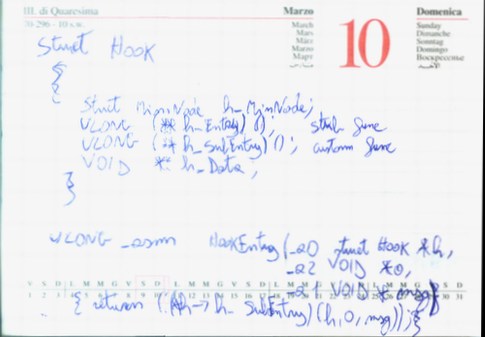 III. di Quaresima
70 296 - 10 s.w.
Marzo
March
Mars
März
Marzo
Март
10
Domenica
Sunday
Dimanche
Sonntag
Domingo
Воскресенье
الأحد
Struct HOOK
{
Struct MinNode h_MinNode;
ULONG (** h_Entry)();
ULONG (** h_SubEntry)();
VOID ** h_Data;
}
ULONG _asm HookEntry(_a0 struct HOOK *h,
_a2 VOID *o,
_a1 VOID * msg)
V S D L M M G V S D L M M G V S D L M M G V S D L M M G V S D
1 2 3 4 5 6 7 8 9 10 11 12 13 14 15 16 17 18 19 20 21 22 23 24 25 26 27 28 29 30 31
{ return ((*h->h_SubEntry)(h,o,msg)); }